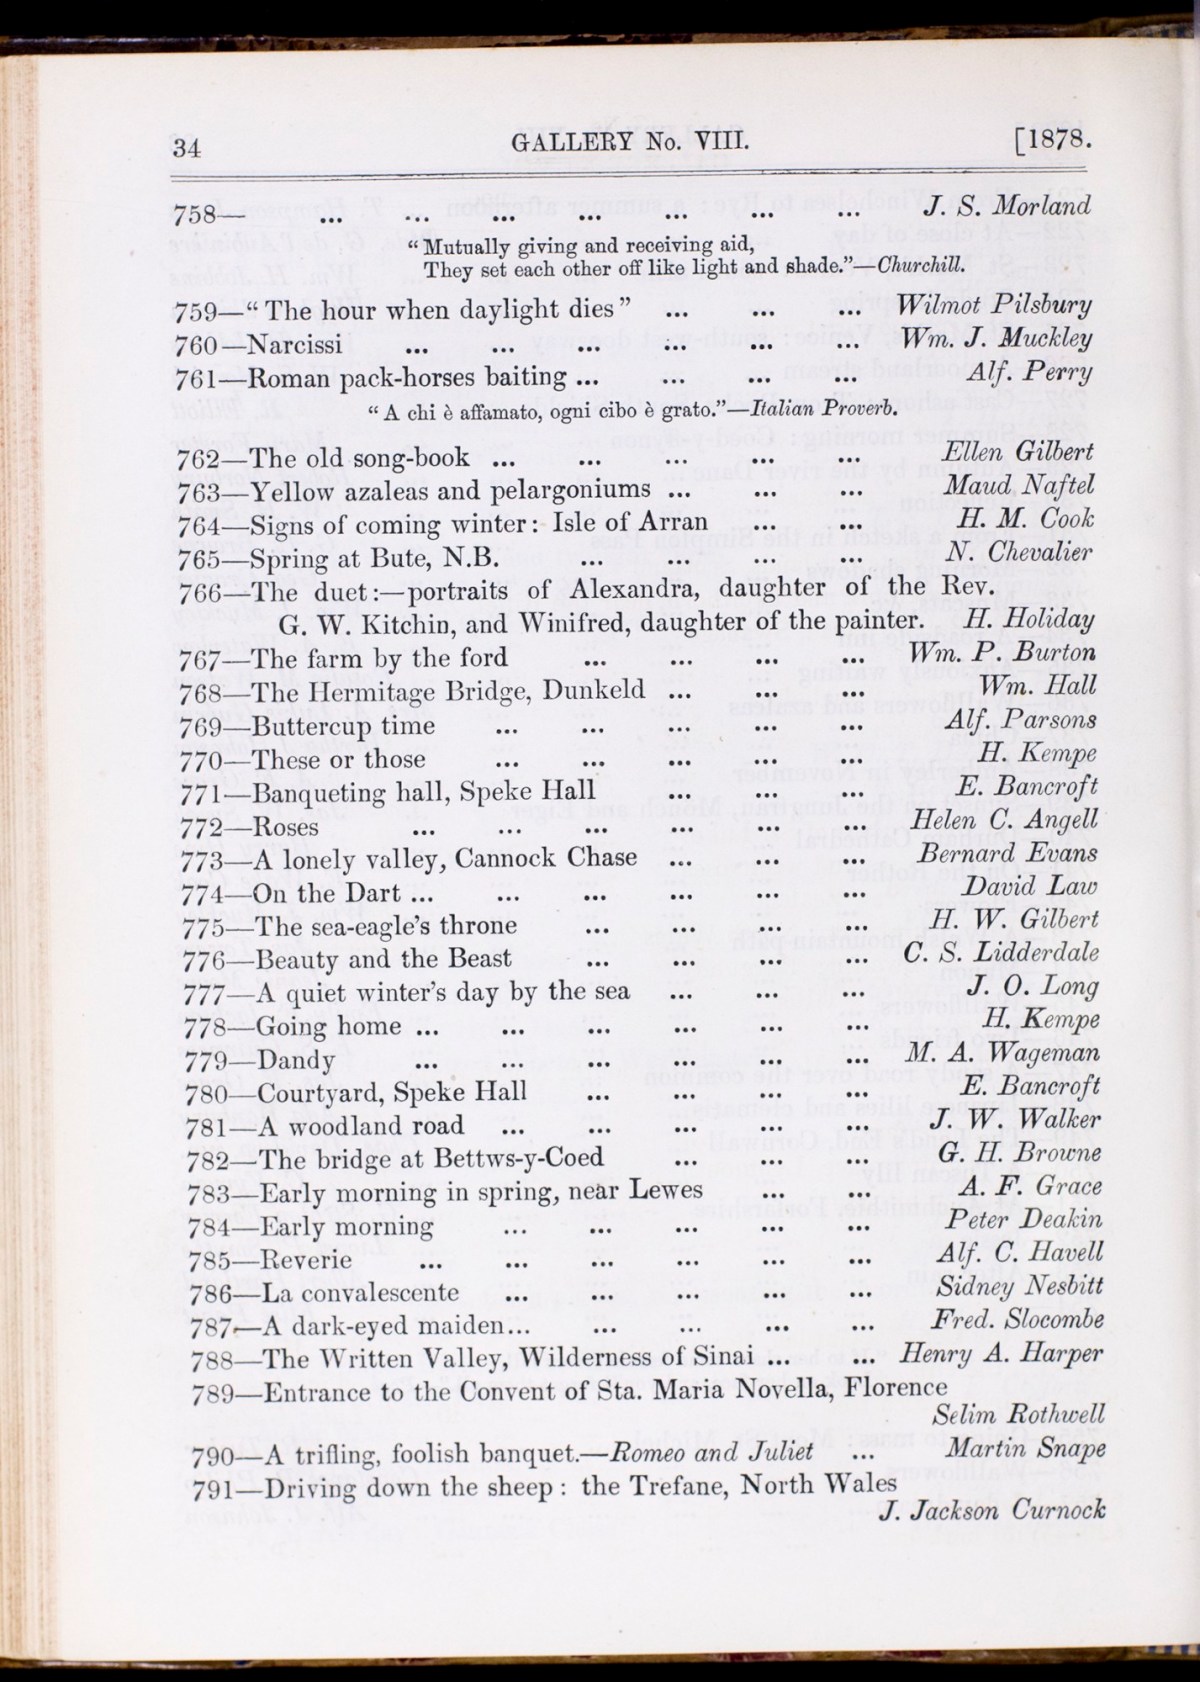 34 GALLERY No. VIII. [1878.
758— ... ... ... ... ... ... ... J. S. Morland
“Mutually giving and receiving aid,
They set each other off like light and shade.”—Churchill.
759—“The hour when daylight dies” ... ... ... Wilmot Pilsbury
760—Narcissi ... ... ... ... ... ... Wm. J. Muckley
761—Roman pack-horses baiting ... ... ... ... Alf. Perry
“A chi è affamato, ogni cibo è grato.”—Italian Proverb.
762—The old song-book ... ... ... ... ... Ellen Gilbert
763—Yellow azaleas and pelargoniums ... ... ... Maud Naftel
764—Signs of coming winter: Isle of Arran ... ... H. M. Cook
765—Spring at Bute, N.B. ... ... ... ... N. Chevalier
766—The duet:—portraits of Alexandra, daughter of the Rev.
G. W. Kitchin, and Winifred, daughter of the painter. H. Holiday
767—The farm by the ford ... ... ... ... Wm. P. Burton
768—The Hermitage Bridge, Dunkeld ... ... ... Wm. Hall
769—Buttercup time ... ... ... ... ... Alf. Parsons
770—These or those ... ... ... ... ... H. Kempe
771—Banqueting hall, Speke Hall ... ... ... E. Bancroft
772—Roses ... ... ... ... ... ... Helen C. Angell
773—A lonely valley, Cannock Chase ... ... ... Bernard Evans
774—On the Dart ... ... ... ... ... ... David Law
775—The sea-eagle’s throne ... ... ... ... H. W. Gilbert
776—Beauty and the Beast ... ... ... ... C. S. Lidderdale
777—A quiet winter’s day by the sea ... ... ... J. O. Long
778—Going home ... ... ... ... ... ... H. Kempe
779—Dandy ... ... ... ... ... ... M. A. Wageman
780—Courtyard, Speke Hall ... ... ... ... E. Bancroft
781—A woodland road ... ... ... ... ... J. W. Walker
782—The bridge at Bettws-y-Coed ... ... ... G. H. Browne
783—Early morning in spring, near Lewes ... ... A. F. Grace
784—Early morning ... ... ... ... ... Peter Deakin
785—Reverie ... ... ... ... ... ... Alf. C. Havell
786—La convalescente ... ... ... ... ... Sidney Nesbitt
787—A dark-eyed maiden... ... ... ... ... Fred. Slocombe
788—The Written Valley, Wilderness of Sinai ... ... Henry A. Harper
789—Entrance to the Convent of Sta. Maria Novella, Florence
Selim Rothwell
790—A trifling, foolish banquet.—Romeo and Juliet ... Martin Snape
791—Driving down the sheep: the Trefane, North Wales
J. Jackson Curnock